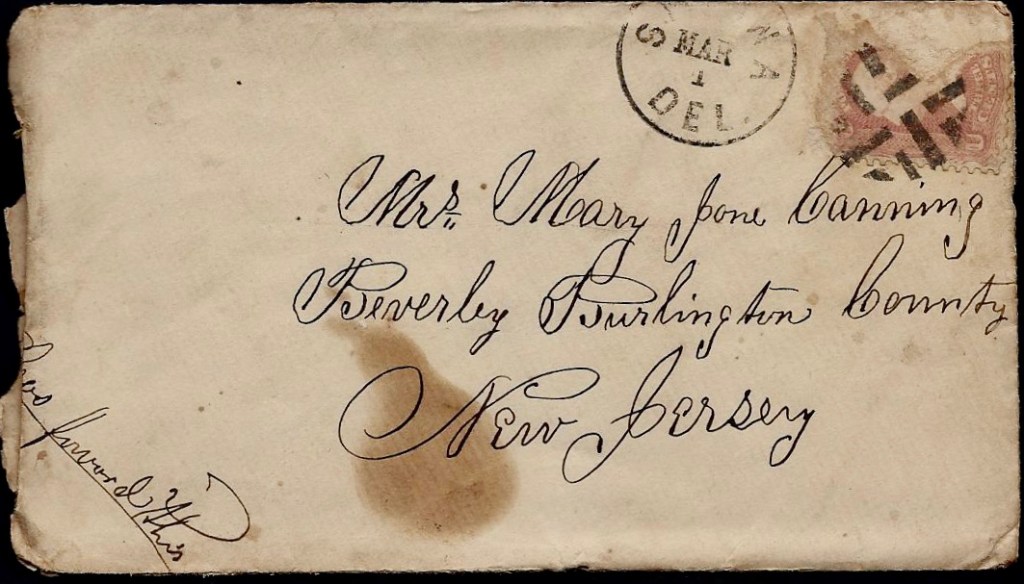 S NA
MAR
1
DEL.
Mrs. Mary Jane Canning
Beverley Burlington County
New Jersey
forward this